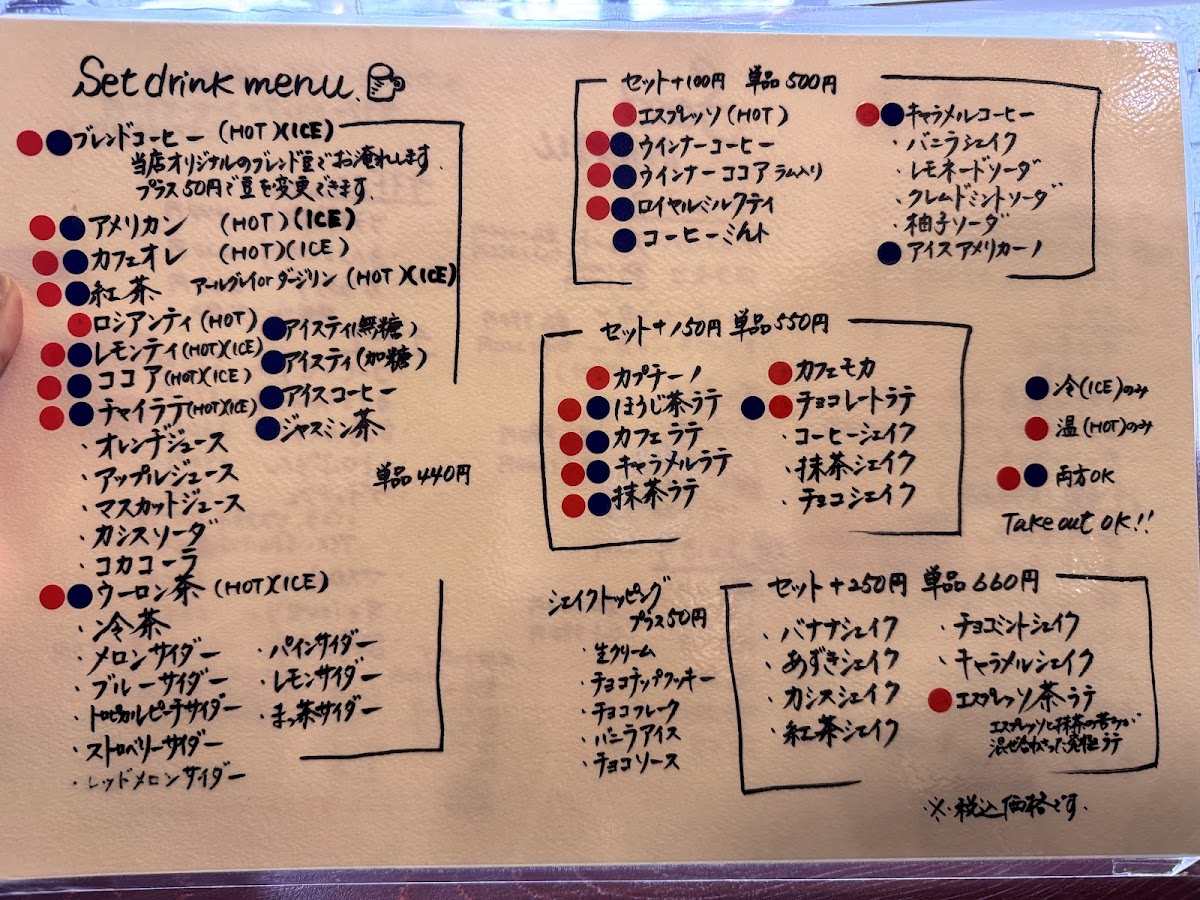 Set drink menu
ブレンドコーヒー (HOT)(ICE)
当店オリジナルのブレンド豆でお淹れします.
プラス50円で豆を変更できます.
アメリカン (HOT)(ICE)
カフェオレ (HOT)(ICE)
紅茶 アールグレイorダージリン (HOT)(ICE)
ロシアンティ(HOT)
レモンティ(HOT)(ICE)
ココア(HOT)(ICE)
チャイラテ(HOT)(ICE)
アイスティ(無糖)
アイスティ(加糖)
アイスコーヒー
ジャスミン茶
・オレンヂジュース
・アップルジュース
・マスカットジュース
・カシスソーダ
・コカコーラ
ウーロン茶 (HOT)(ICE)
・冷茶
・メロンサイダー
・ブルーサイダー
・トロピカルピーチサイダー
・ストロベリーサイダー
・レッドメロンサイダー
・パインサイダー
・レモンサイダー
・まっ茶サイダー
単品440円
セット+100円 単品500円
エスプレッソ(HOT)
ウインナーコーヒー
ウインナーココア ラム入り
ロイヤルミルクティ
コーヒーみんト
キャラメルコーヒー
・バニラシェイク
・レモネードソーダ
・クレムドミントソーダ
・柚子ソーダ
アイスアメリカーノ
セット+150円 単品550円
カプチーノ
ほうじ茶ラテ
カフェラテ
キャラメルラテ
抹茶ラテ
カフェモカ
チョコレートラテ
・コーヒーシェイク
・抹茶シェイク
・チョコシェイク
冷(ICE)のみ
温(HOT)のみ
両方OK
Take out OK!!
シェイクトッピング
プラス50円
・生クリーム
・チョコチップクッキー
・チョコフレーク
・バニラアイス
・チョコソース
セット+250円 単品660円
・バナナシェイク
・あずきシェイク
・カシスシェイク
・紅茶シェイク
・チョコミントシェイク
・キャラメルシェイク
エスプレッソ茶ラテ
エスプレッソと抹茶の苦みが
混ぜ合わさった究極ラテ
※税込価格です.